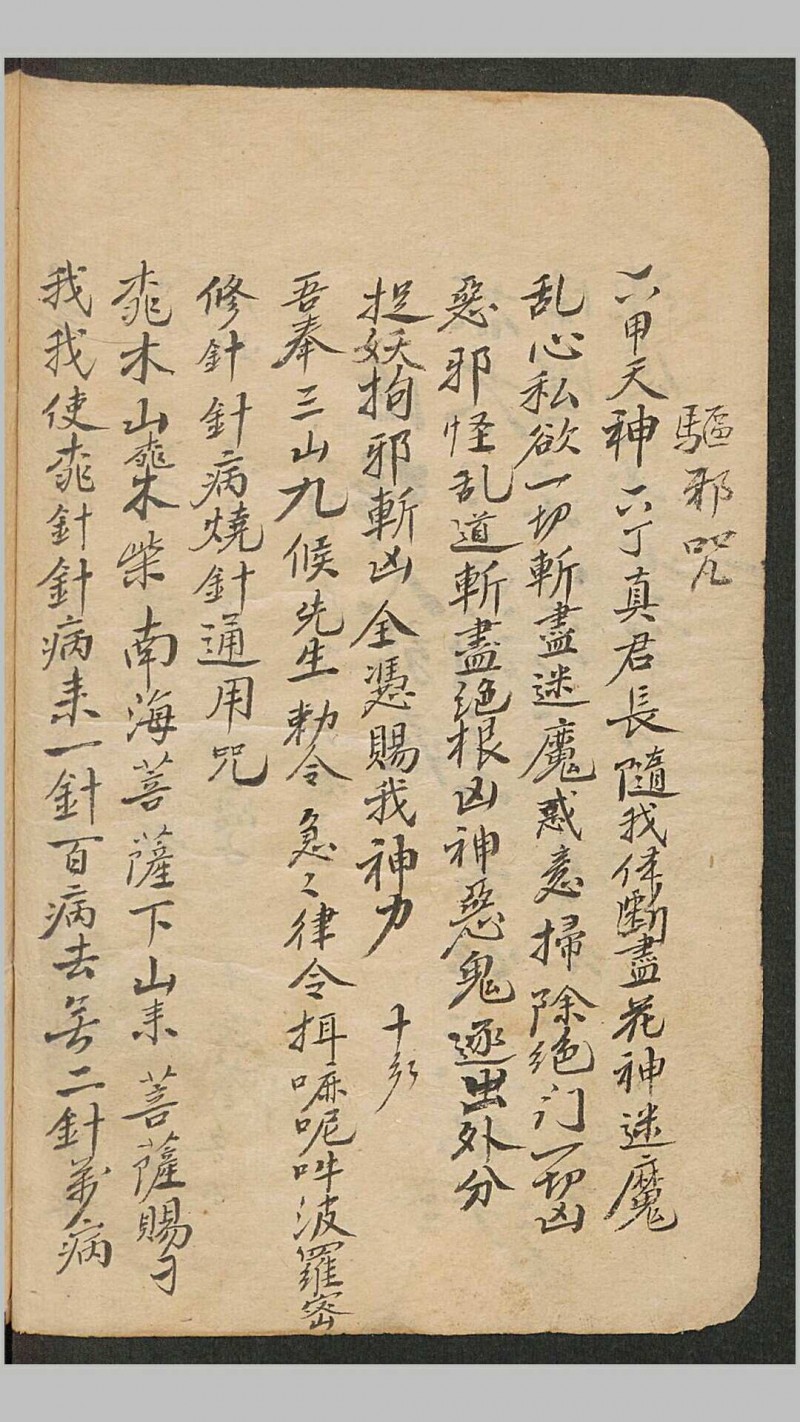 驅邪咒
六甲天神六丁真君長隨我体斷盡花神迷魔
乱心私欲一切斬盡迷魔惑意掃除绝门一切凶
惡邪怪乱道斬盡绝根凶神惡鬼逐出外分
捉妖拘邪斬凶全憑賜我神力
吾奉三山九候先生勅令急〻律令揖嘛呢吽波羅密
修針針病燒針通用咒
木山 木柴南海菩薩下山来菩薩賜
我我使 針針病来一針百病去務二針萬病